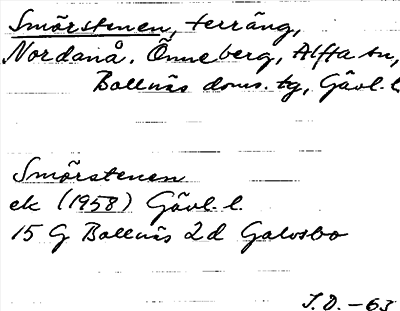 Smörstenen, terräng,
Nordanå, Önneberg, Alfta sn,
Bollnäs doms. tg, Gävl. l.
Smörstenen
ek (1958) Gävl. l.
15 G Bollnäs 2d Galvsbo
J.O. -63